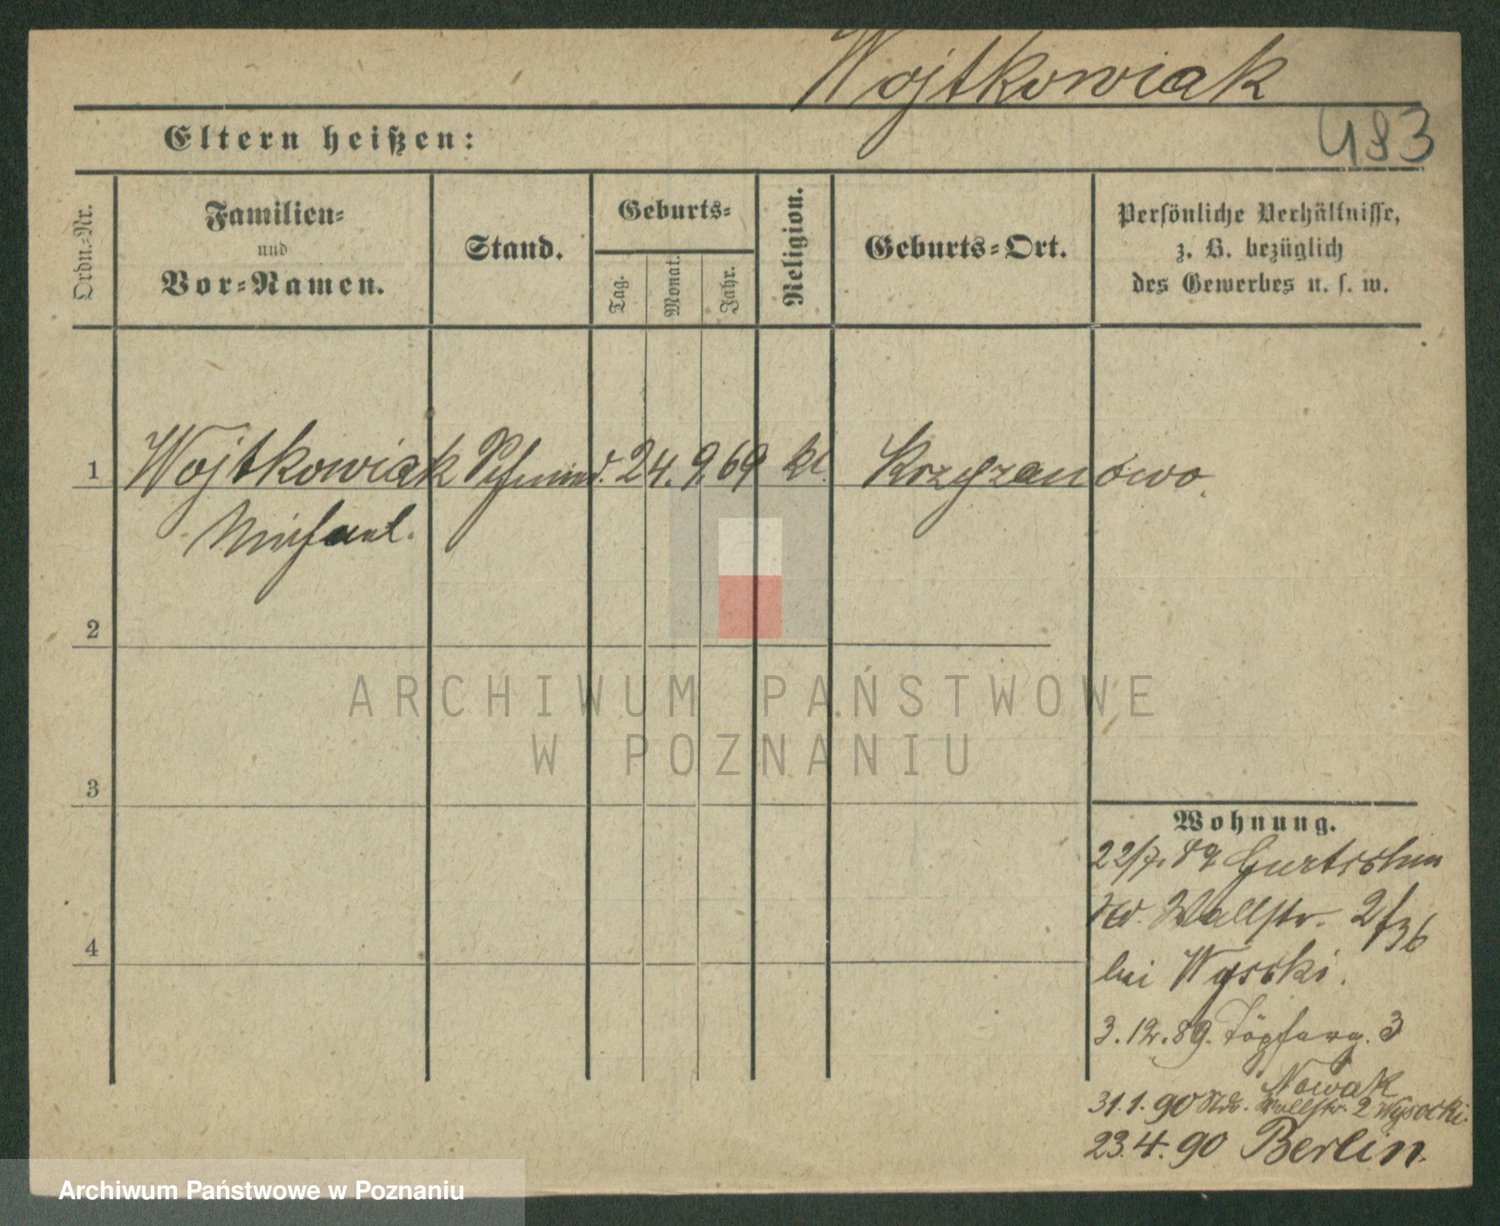 Wojtkowiak
483
Eltern heißen:
Ordn.-Nr.
Familien-
und
Vor-Namen.
Stand.
Geburts-
Tag.
Monat.
Jahr.
Religion.
Geburts-Ort.
Persönliche Verhältnisse,
z. B. bezüglich
des Gewerbes u. s. w.
1 Wojtkowiak Schmied. 24. 9. 69 kl. Krzyzanowo.
Michael.
2
ARCHIWUM PAŃSTWOWE
W POZNANIU
3
Wohnung.
22/7. 89 Gurtschin
Wallstr. 2/36
4
bei Wysski.
3. 12. 89. Töpferg. 3
Nowak
31. 1. 90 Wallstr. 2 Wysocki.
23. 4. 90 Berlin.
Archiwum Państwowe w Poznaniu